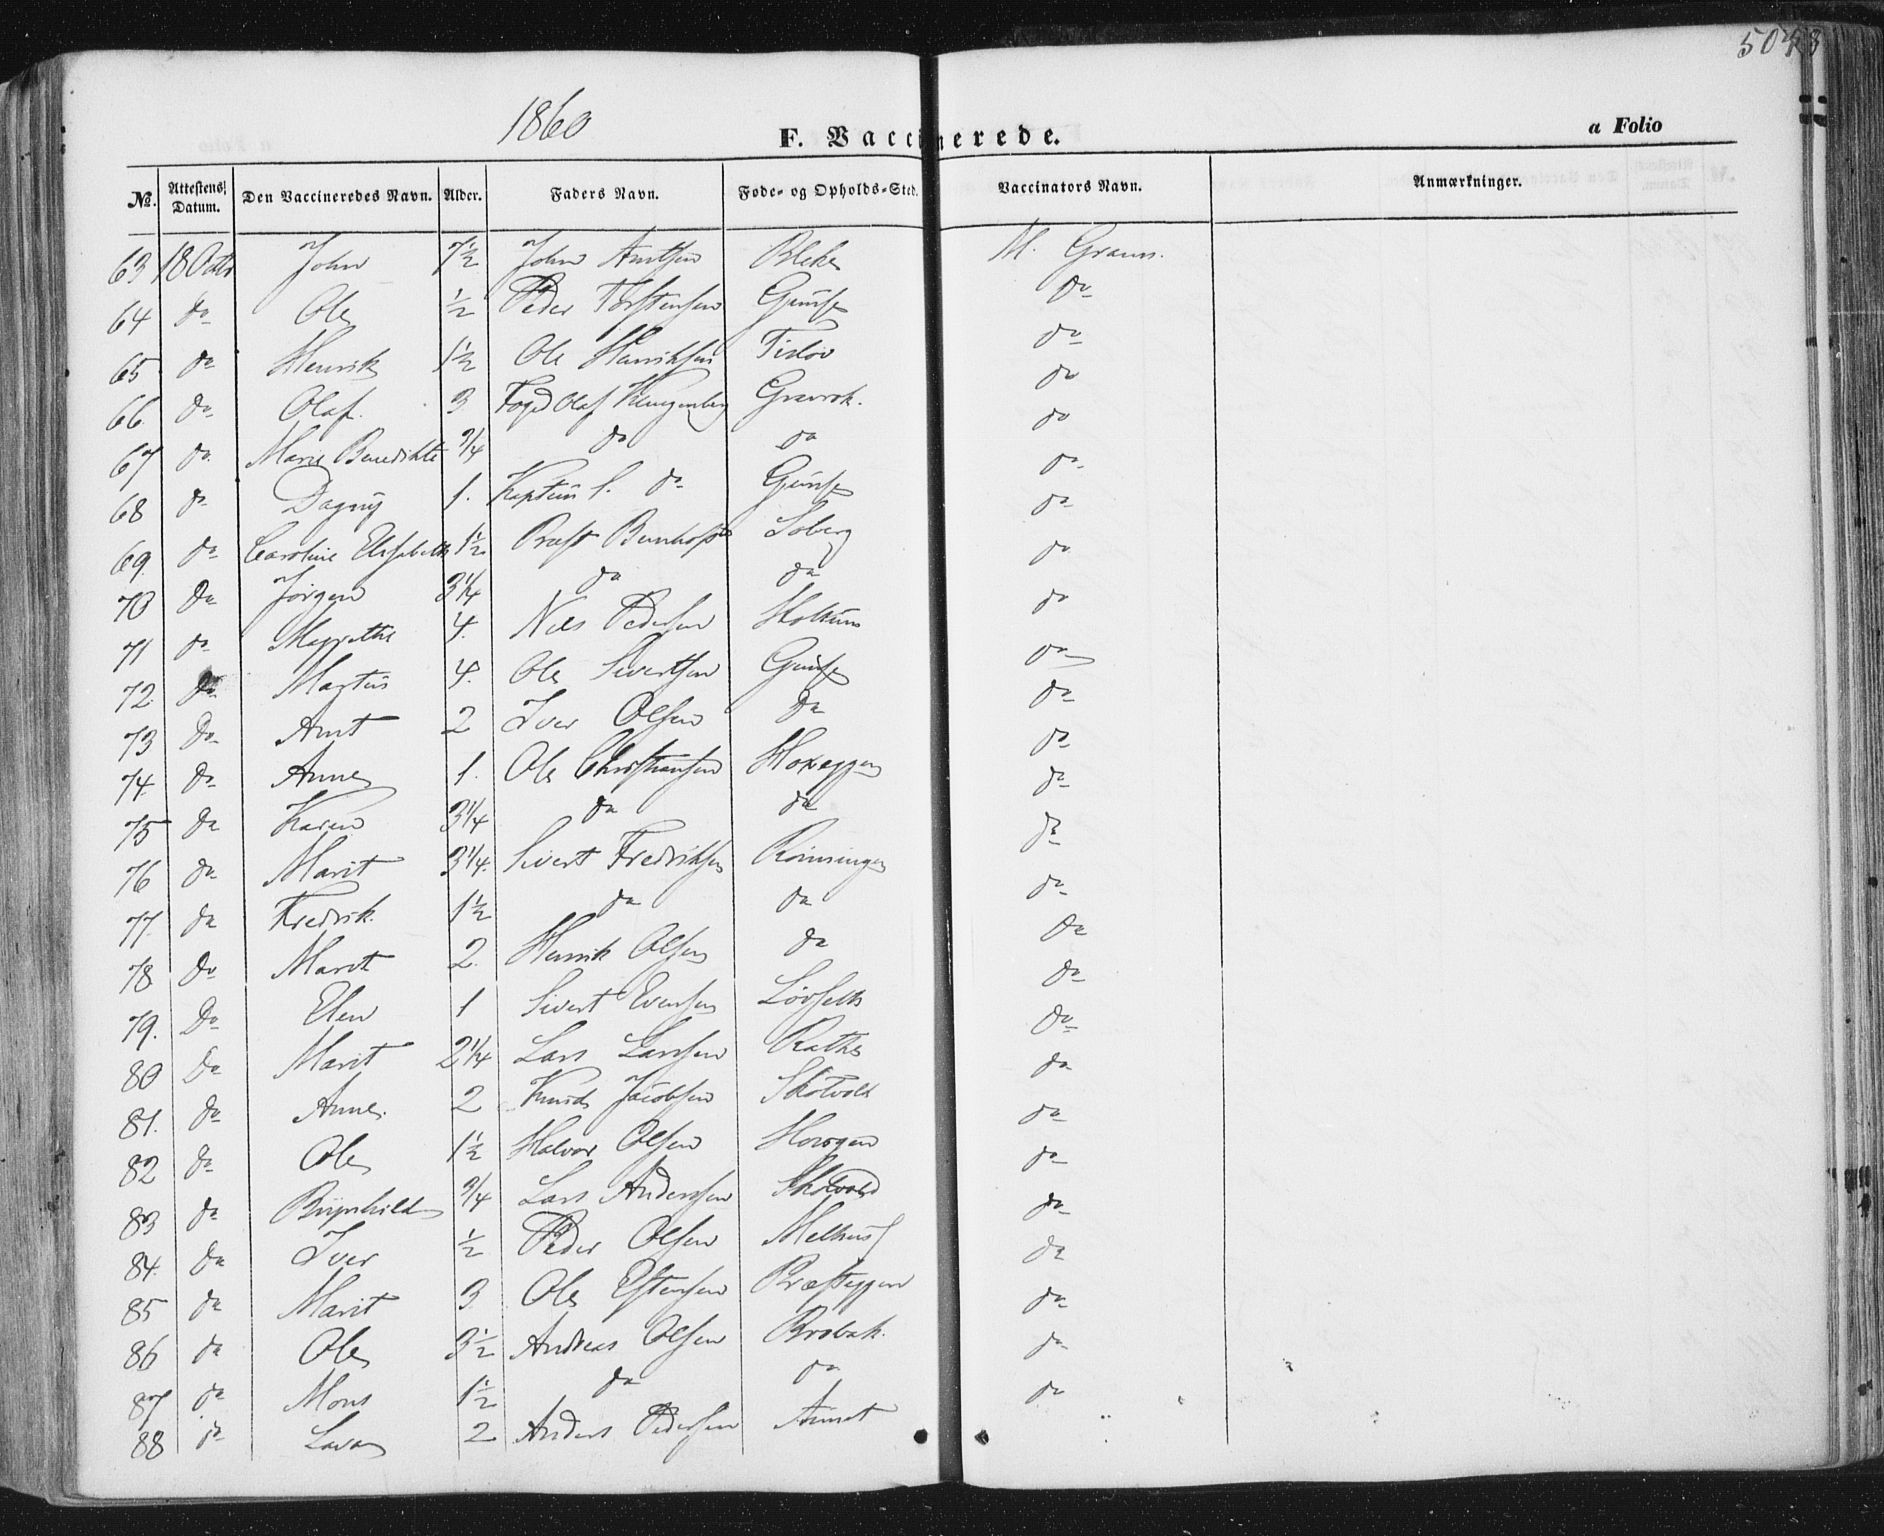 1860
F. Vaccinerede.
a Folio
No. Attestens Datum. Den Vaccineredes Navn. Alder. Faders Navn. Føde- og Opholds-Sted. Vaccinators Navn. Anmærkninger.
63 18 Octbr John 7½ John Arntsen M. Graun.
64 do Ole ½ Peder Torstensen do
65 do Henrik 1½ Ole Henriksen do
66 do Olaf. 3 Foged Olaf Klingenberg Gravrok. do
67 do Marie Benedikte 3/4 do do do
68 do Dagny 1. do do
69 do Caroline Elisabeth 1½ Præst Soberg do
70 do Jörgen 3¼ do do do
71 do Meggrethe 4. Nils Pedersen do
72 do 4. Ole Sivertsen do
73 do Arnt 2 Iver Olsen do do
74 do Anne 1. Ole Christiansen Hoxeggen do
75 do Karen 3¼ do do do
76 do Marit 3¼ Sivert Fredriksen do
77 do Fredrik 1½ do do do
78 do Marit 2 Henrik Olsen do do
79. Do Elen 1 Sivert Evensen Lövseth do
80 Do Marit 2¼ Lars Larssen Rathe do
81. do Anne. 2 Knud Jacobsen Skotvold do
82 do Ole 1½ Halvor Olsen Horgen do
83 do Brynhild 3/4 Lars Anderssen Skotvold do
84. do Iver ½ Peder Olsen Melhus do
85 do Marit 3 Ole Estensen Præsteggen do
86 do Ole 3½ Andreas Olsen Brobak. do
87 do Mons 1½ do do do
88 do 2 Anders Pedersen